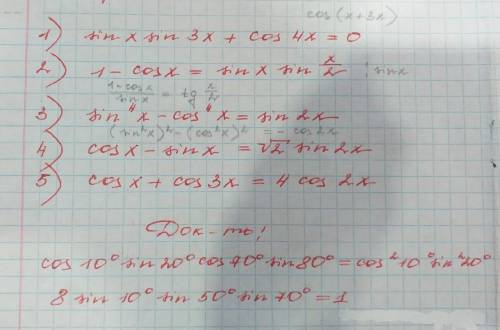 cos(x+3x)
1) sin x sin 3x + cos 4x = 0
2) 1 - cos x = sin x sin x/2 | : sin x
(1-cos x)/(sin x) = tg x/2
3) sin⁴x - cos⁴x = sin 2x
(sin²x)² - (cos²x)² = - cos 2x
4) cos x - sin x = √2 sin 2x
5) cos x + cos 3x = 4 cos 2x
Док-ть!
cos 10° sin 20° cos 70° sin 80° = cos² 10° sin² 20°
8 sin 10° sin 50° sin 70° = 1